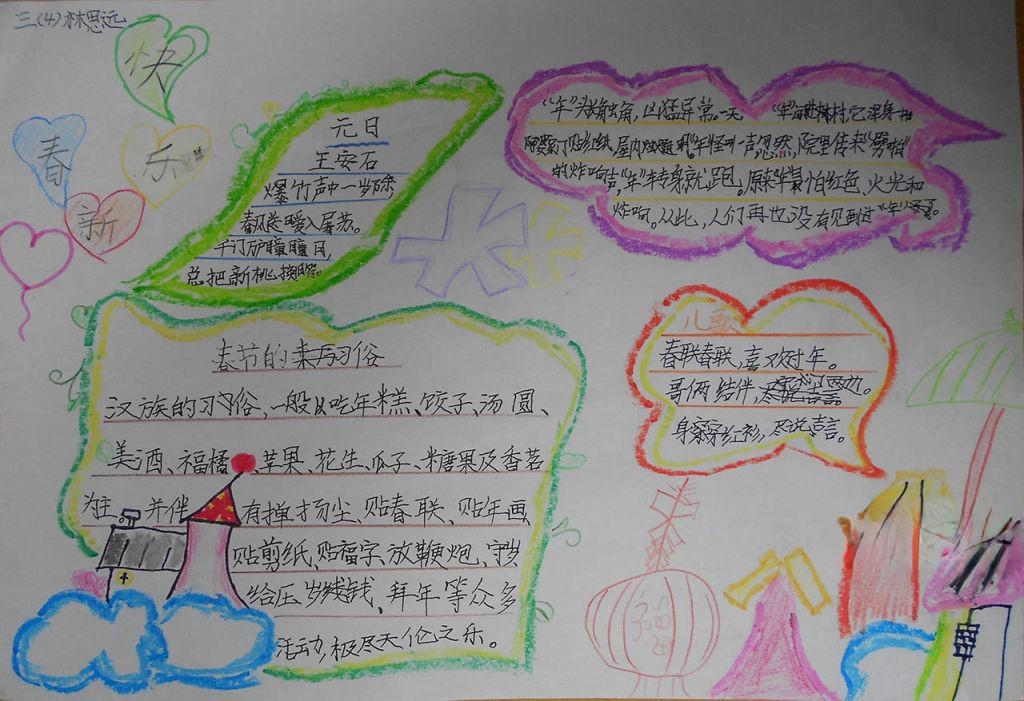 三(4)林思远
快
春
乐
新
元日
王安石
爆竹声中一岁除
春风送暖入屠苏。
千门万户曈曈日，
总把新桃换旧符。
"年"头长触角，凶猛异常。一天 "年"
贴红纸，屋内 "年"怪叫一声。忽然，院里传来
的炸响声，"年"转身就跑。原来"年"最怕红色、火光和
炸响。从此，人们再也没有见到过"年"
春节的来历习俗
汉族的习俗，一般以吃年糕、饺子、汤圆、
美酒、福橘、苹果、花生、瓜子、糖果及香茗
为主。并伴有掸扬尘、贴春联、贴年画、
贴剪纸、贴福字、放鞭炮、守岁
给压岁钱、拜年等众多
活动，极尽天伦之乐。
儿歌
春联春联，喜欢过年。
哥俩结伴，
身穿红衫，尽说喜言。